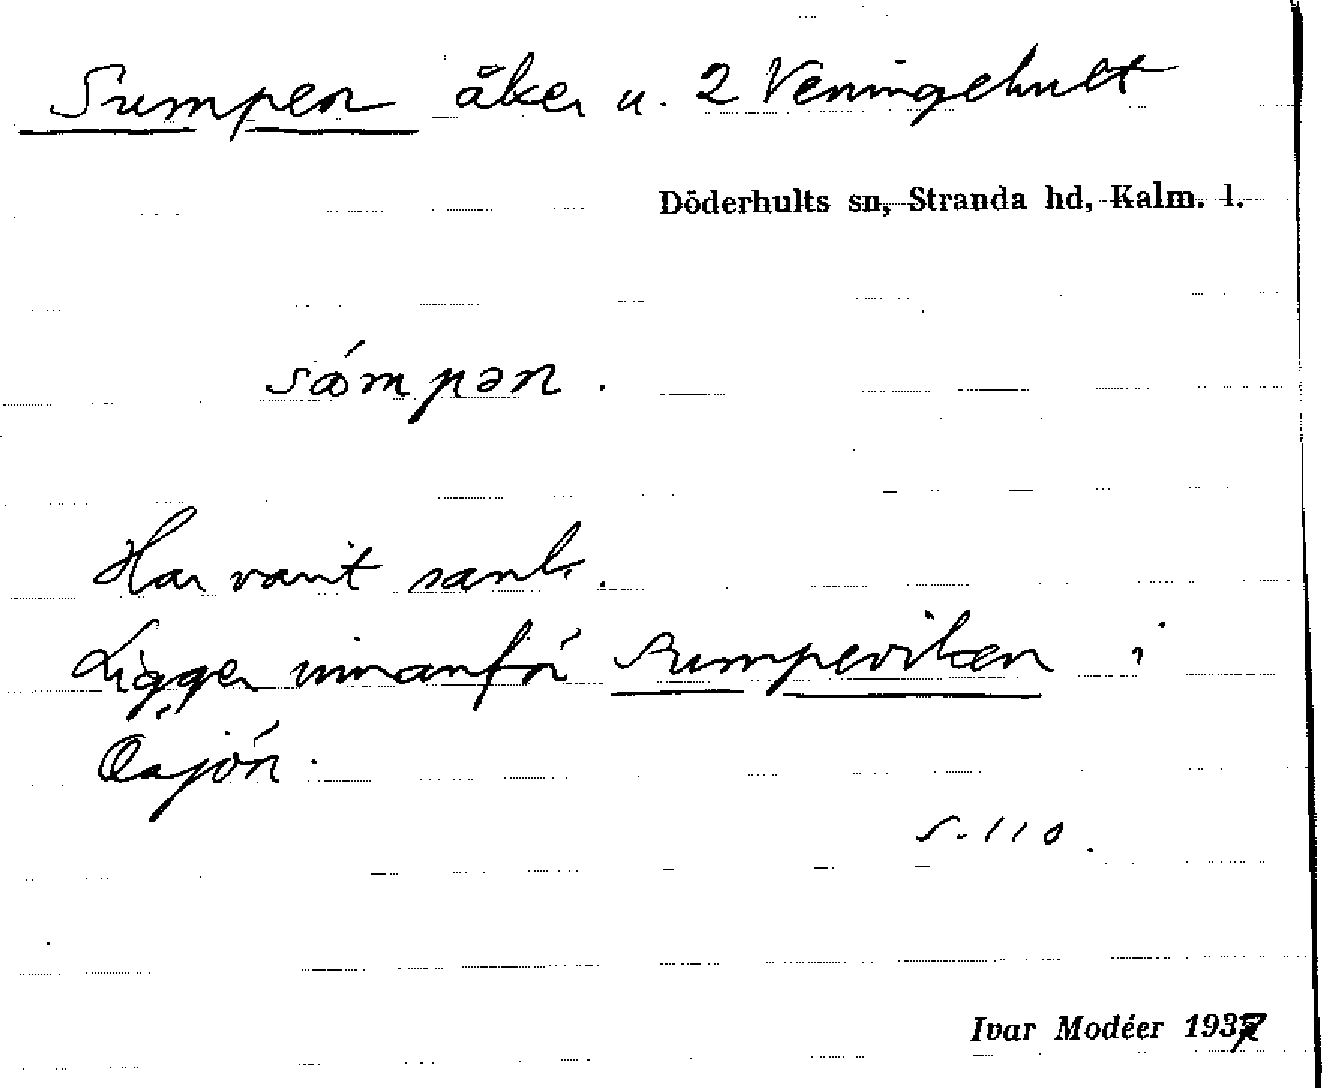 Sumpen åker u. 2 Veningehult
Döderhults sn, Stranda hd, Kalm. l.
sómpən.
Har varit sank.
Ligger innanför Sumpeviken i
Öasjön.
S. 110.
Ivar Modéer 1937